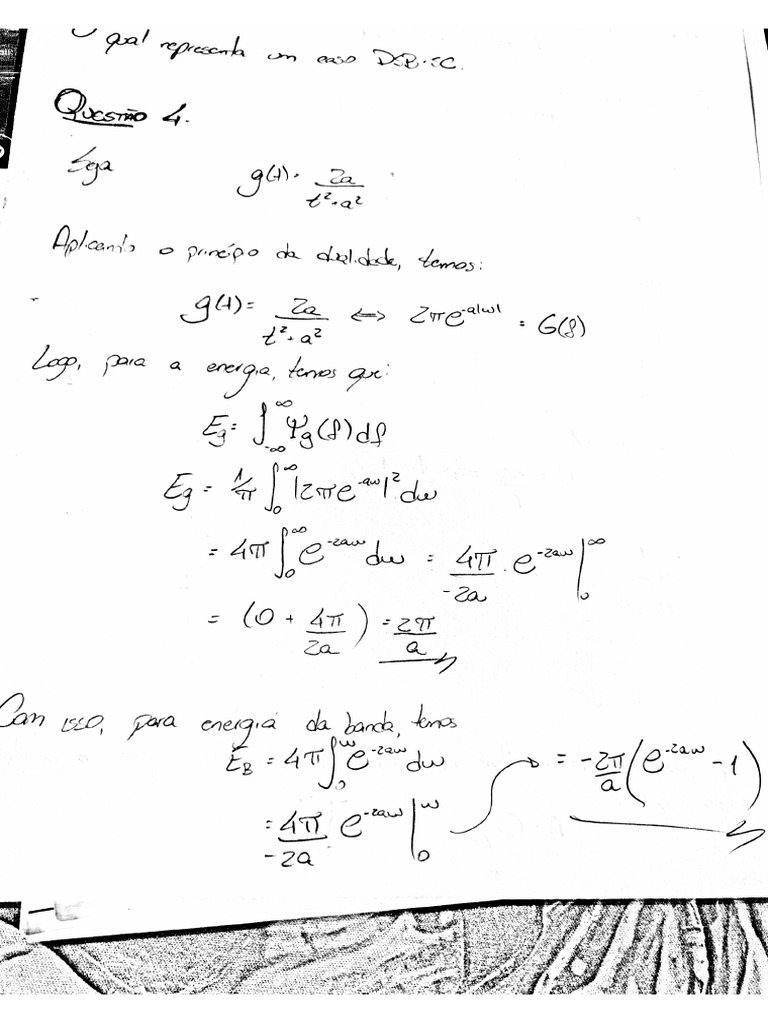 O qual representa um caso DSB-SC.
QUESTÃO 4.
Seja g(t) = 2a / (t² + a²)
Aplicando o princípo da dualidade, temos:
g(t) = 2a / (t² + a²) ⇔ 2πe^(-a|ω|) = G(f)
Logo, para a energia, temos que:
Eg = ∫_{-∞}^{∞} Ψg(f) df
Eg = 1/π ∫_0^∞ |2πe^(-aω)|² dω
= 4π ∫_0^∞ e^(-2aω) dω = 4π/(-2a) . e^(-2aω) |_0^∞
= (0 + 4π/2a) = 2π/a
Com isso, para energia da banda, temos
E_B = 4π ∫_0^W e^(-2aω) dω
= 4π/(-2a) e^(-2aω) |_0^W = -2π/a (e^(-2aω) - 1)